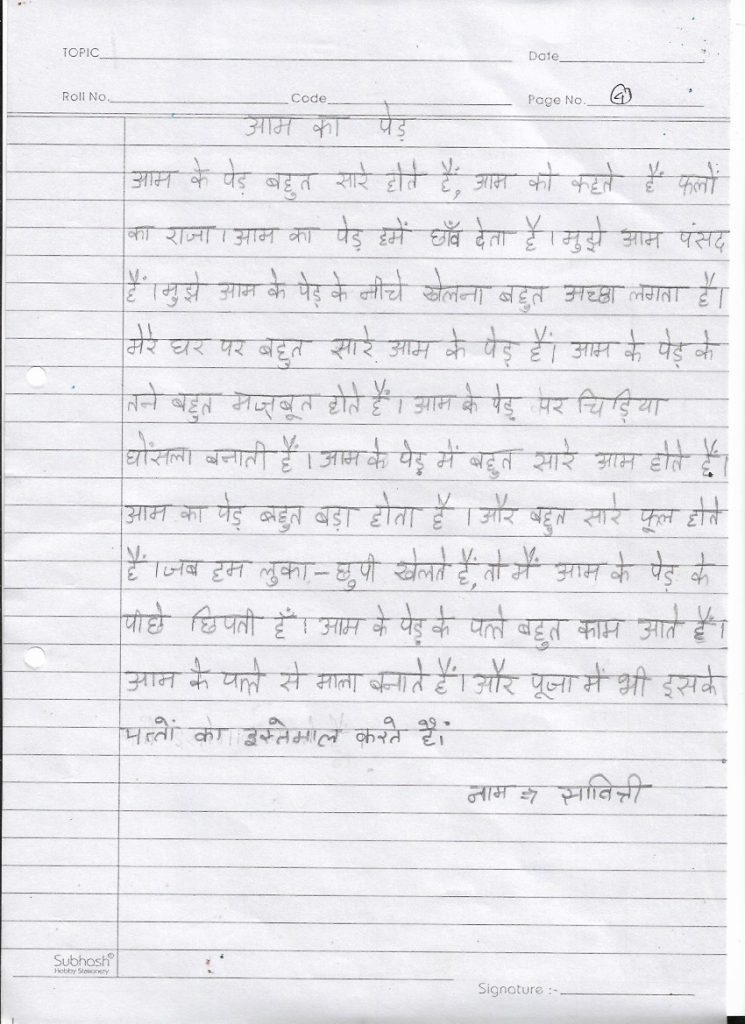 TOPIC
Date
Roll No. Code Page No. 4
आम का पेड़
आम के पेड़ बहुत सारे होते हैं, आम को कहते हैं फलों
का राजा। आम का पेड़ हमें छाँव देता है। मुझे आम पंसद
हैं। मुझे आम के पेड़ के नीचे खेलना बहुत अच्छा लगता है।
मेरे घर पर बहुत सारे आम के पेड़ हैं। आम के पेड़ के
तने बहुत मज़्बूत होते हैं। आम के पेड़ पर चिड़िया
घोंसला बनाती हैं। आम के पेड़ में बहुत सारे आम होते हैं।
आम का पेड़ बहुत बड़ा होता है। और बहुत सारे फूल होते
हैं। जब हम लुका-छुपी खेलते हैं, तो मैं आम के पेड़ के
पीछे छिपती हूँ। आम के पेड़ के पत्ते बहुत काम आते हैं।
आम के पत्ते से माला बनाते हैं। और पूजा में भी इसके
पत्तों का इस्तेमाल करते हैं।
नाम ⇒ सावित्री
Subhash
Hobby Stationery
Signature :-